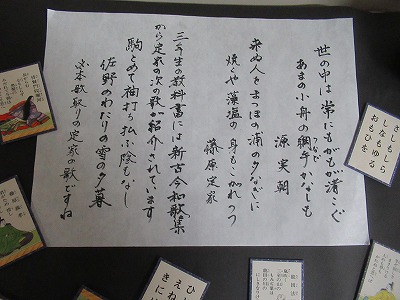 世の中は 常にもがもが渚こぐ
あまの小舟の綱手かなしも
つなで
源 実朝
来ぬ人を まつほの浦の夕なぎに
焼くや藻塩の 身もこがれつつ
藤原定家
三年生の教科書には新古今和歌集
から定家の次の歌が紹介されています
駒とめて袖打ち払ふ陰もなし
佐野のわたりの雪の夕暮
本歌取りの定家の歌ですね
さしもしら
しなもゆる
おもひを